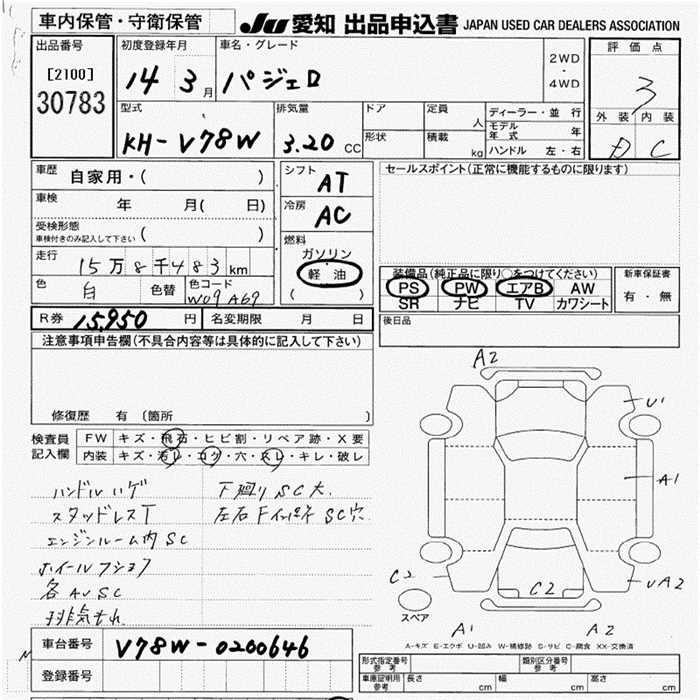 車内保管・守衛保管
JU 愛知 出品申込書 JAPAN USED CAR DEALERS ASSOCIATION
出品番号
[2100]
30783
初度登録年月
14年3月
車名・グレード
パジェロ
2WD
・
4WD
評価点
3
外装 内装
D C
型式
KH-V78W
排気量
3.20 CC
ドア
形状
定員 人
積載 kg
ディーラー・並 行
モデル年式 年
ハンドル 左・右
車歴 自家用・( )
車検 年 月( 日)
受検形態
車検付きのみ記入して下さい ( )
走行
15万8千483km
色 白 色替 色コード W09 A69
シフト
AT
冷房
AC
燃料
ガソリン
軽油
( )
セールスポイント(正常に機能するものに限ります)
装備品(純正品に限り○をつけてください)
PS PW エアB AW
SR ナビ TV カワシート
新車保証書
有・無
R券 15,950円 名変期限 月 日
後日品
注意事項申告欄(不具合内容等は具体的に記入して下さい)
修復歴 有 〔箇所 〕
検査員
記入欄
FW キズ・飛石・ヒビ割・リペア跡・X要
内装 キズ・汚レ・コゲ・穴・スレ・キレ・破レ
ハンドルハゲ
スタッドレスT
エンジンルーム内SC
ホイールフショク
各AUSC
排気もれ
下廻りSC大
左右 SC穴
A2
U1
A1
UA2
C2
C2
A1
A2
スペア
A-キズ E-エクボ U-凹み W-補修跡 S-サビ C-腐食 XX-交換済
車台番号 V78W-0200646
登録番号
形式指定番号
参考
類別区分番号
参考
車庫証明用
参考
長さ cm 幅 cm 高さ cm